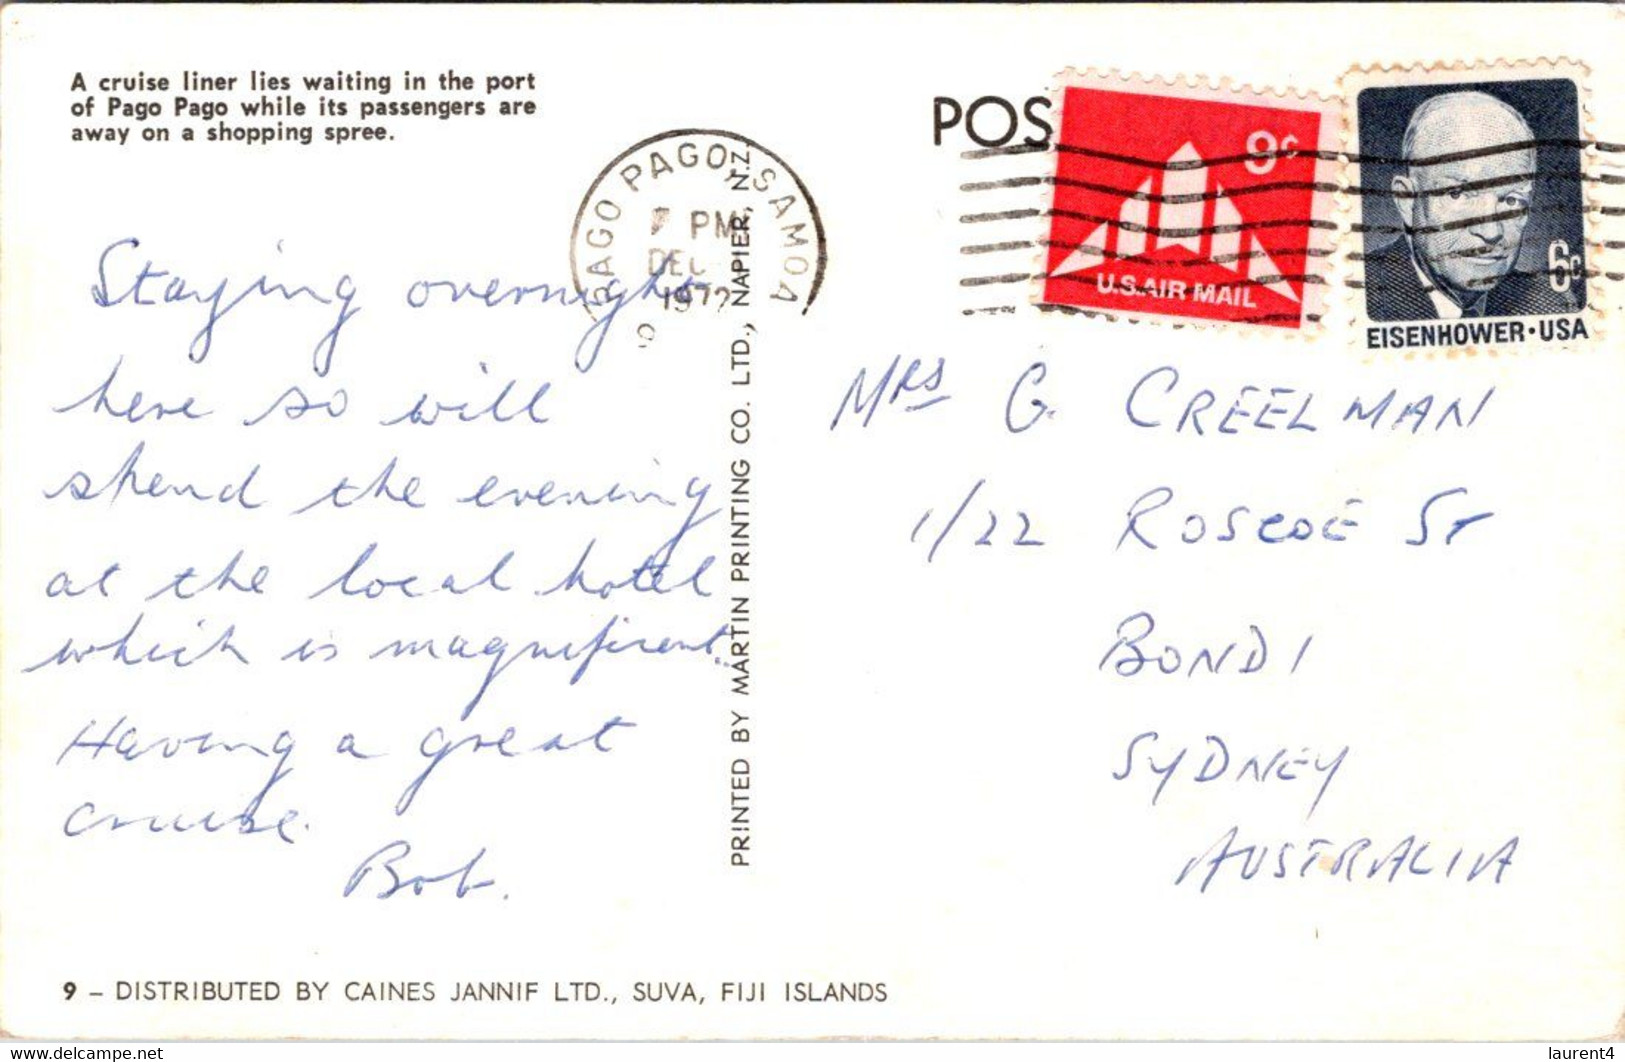 A cruise liner lies waiting in the port
of Pago Pago while its passengers are
away on a shopping spree.
POS
PAGO PAGO, SAMOA
PM
DEC
1972
9c
U.S. AIR MAIL
6c
EISENHOWER · USA
Staying overnight
here so will
spend the evening
at the local hotel
which is magnificent.
Having a great
cruise.
Bob.
PRINTED BY MARTIN PRINTING CO. LTD., NAPIER, N.Z.
Mrs G. CREELMAN
1/22 ROSCOE ST
BONDI
SYDNEY
AUSTRALIA
9 – DISTRIBUTED BY CAINES JANNIF LTD., SUVA, FIJI ISLANDS
www.delcampe.net
laurent4